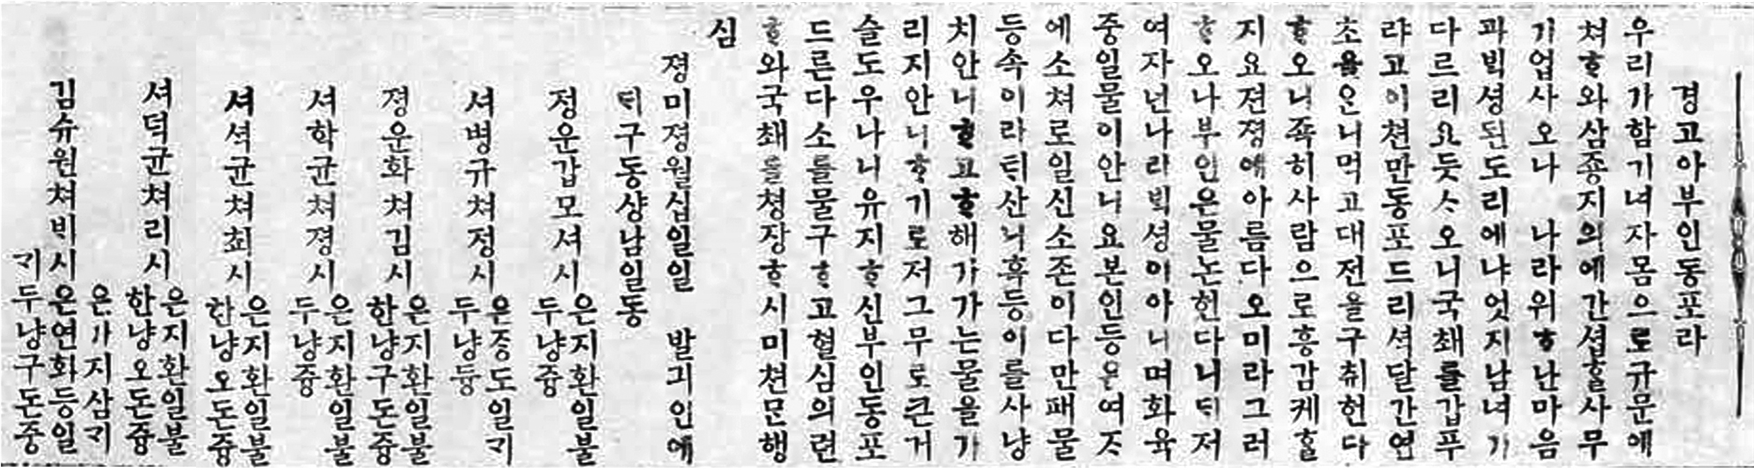 경고아부인동포라
우리가함기녀자몸으로규문에
쳐ᄒᆞ와삼죵지의에간셥ᄒᆞᆯ사무
기업사오나 나라위ᄒᆞ난마음
과ᄇᆡᆨ셩된도리에냐엇지남녀가
다르리요듯ᄉᆞ오니국ᄎᆡ를갑푸
랴고이쳔만동포드리셔달간연
초을ᄋᆞᆫ니먹고대전을구취헌다
ᄒᆞ오니죡히사람으로흥감케ᄒᆞᆯ
지요젼졍에아름다오미라그러
ᄒᆞ오나부인은물논헌다니ᄃᆡ저
여자넌나라ᄇᆡᆨ셩이아니며화육
중일물이안니요본인등은여ᄌᆞ
에소쳐로일신소존이다만패물
등속이라ᄐᆡ산니흑등이를사냥
치안니ᄒᆞ고ᄒᆞ해가가는물을가
리지안니ᄒᆞ기로저그무로큰거
슬도우나니유지ᄒᆞ신부인동포
드른다소를물구ᄒᆞ고혈심의련
ᄒᆞ와국채를쳥장ᄒᆞ시미쳔만행
심
졍미졍월십일일 발긔인에
ᄃᆡ구동샹남일동
정운갑모셔시 은지환일불
두냥즁
셔병규쳐정시 은쟝도일ᄀᆡ
두냥듕
졍운화쳐김시 은지환일불
한냥구돈즁
셔학균쳐졍시 은지환일불
두냥즁
셔셕균쳐최시 은지환일불
한냥오돈즁
셔덕균쳐리시 은지환일불
한냥오돈즁
김슈원쳐ᄇᆡ시 은가지삼ᄀᆡ
은연화등일
ᄀᆡ두냥구돈중